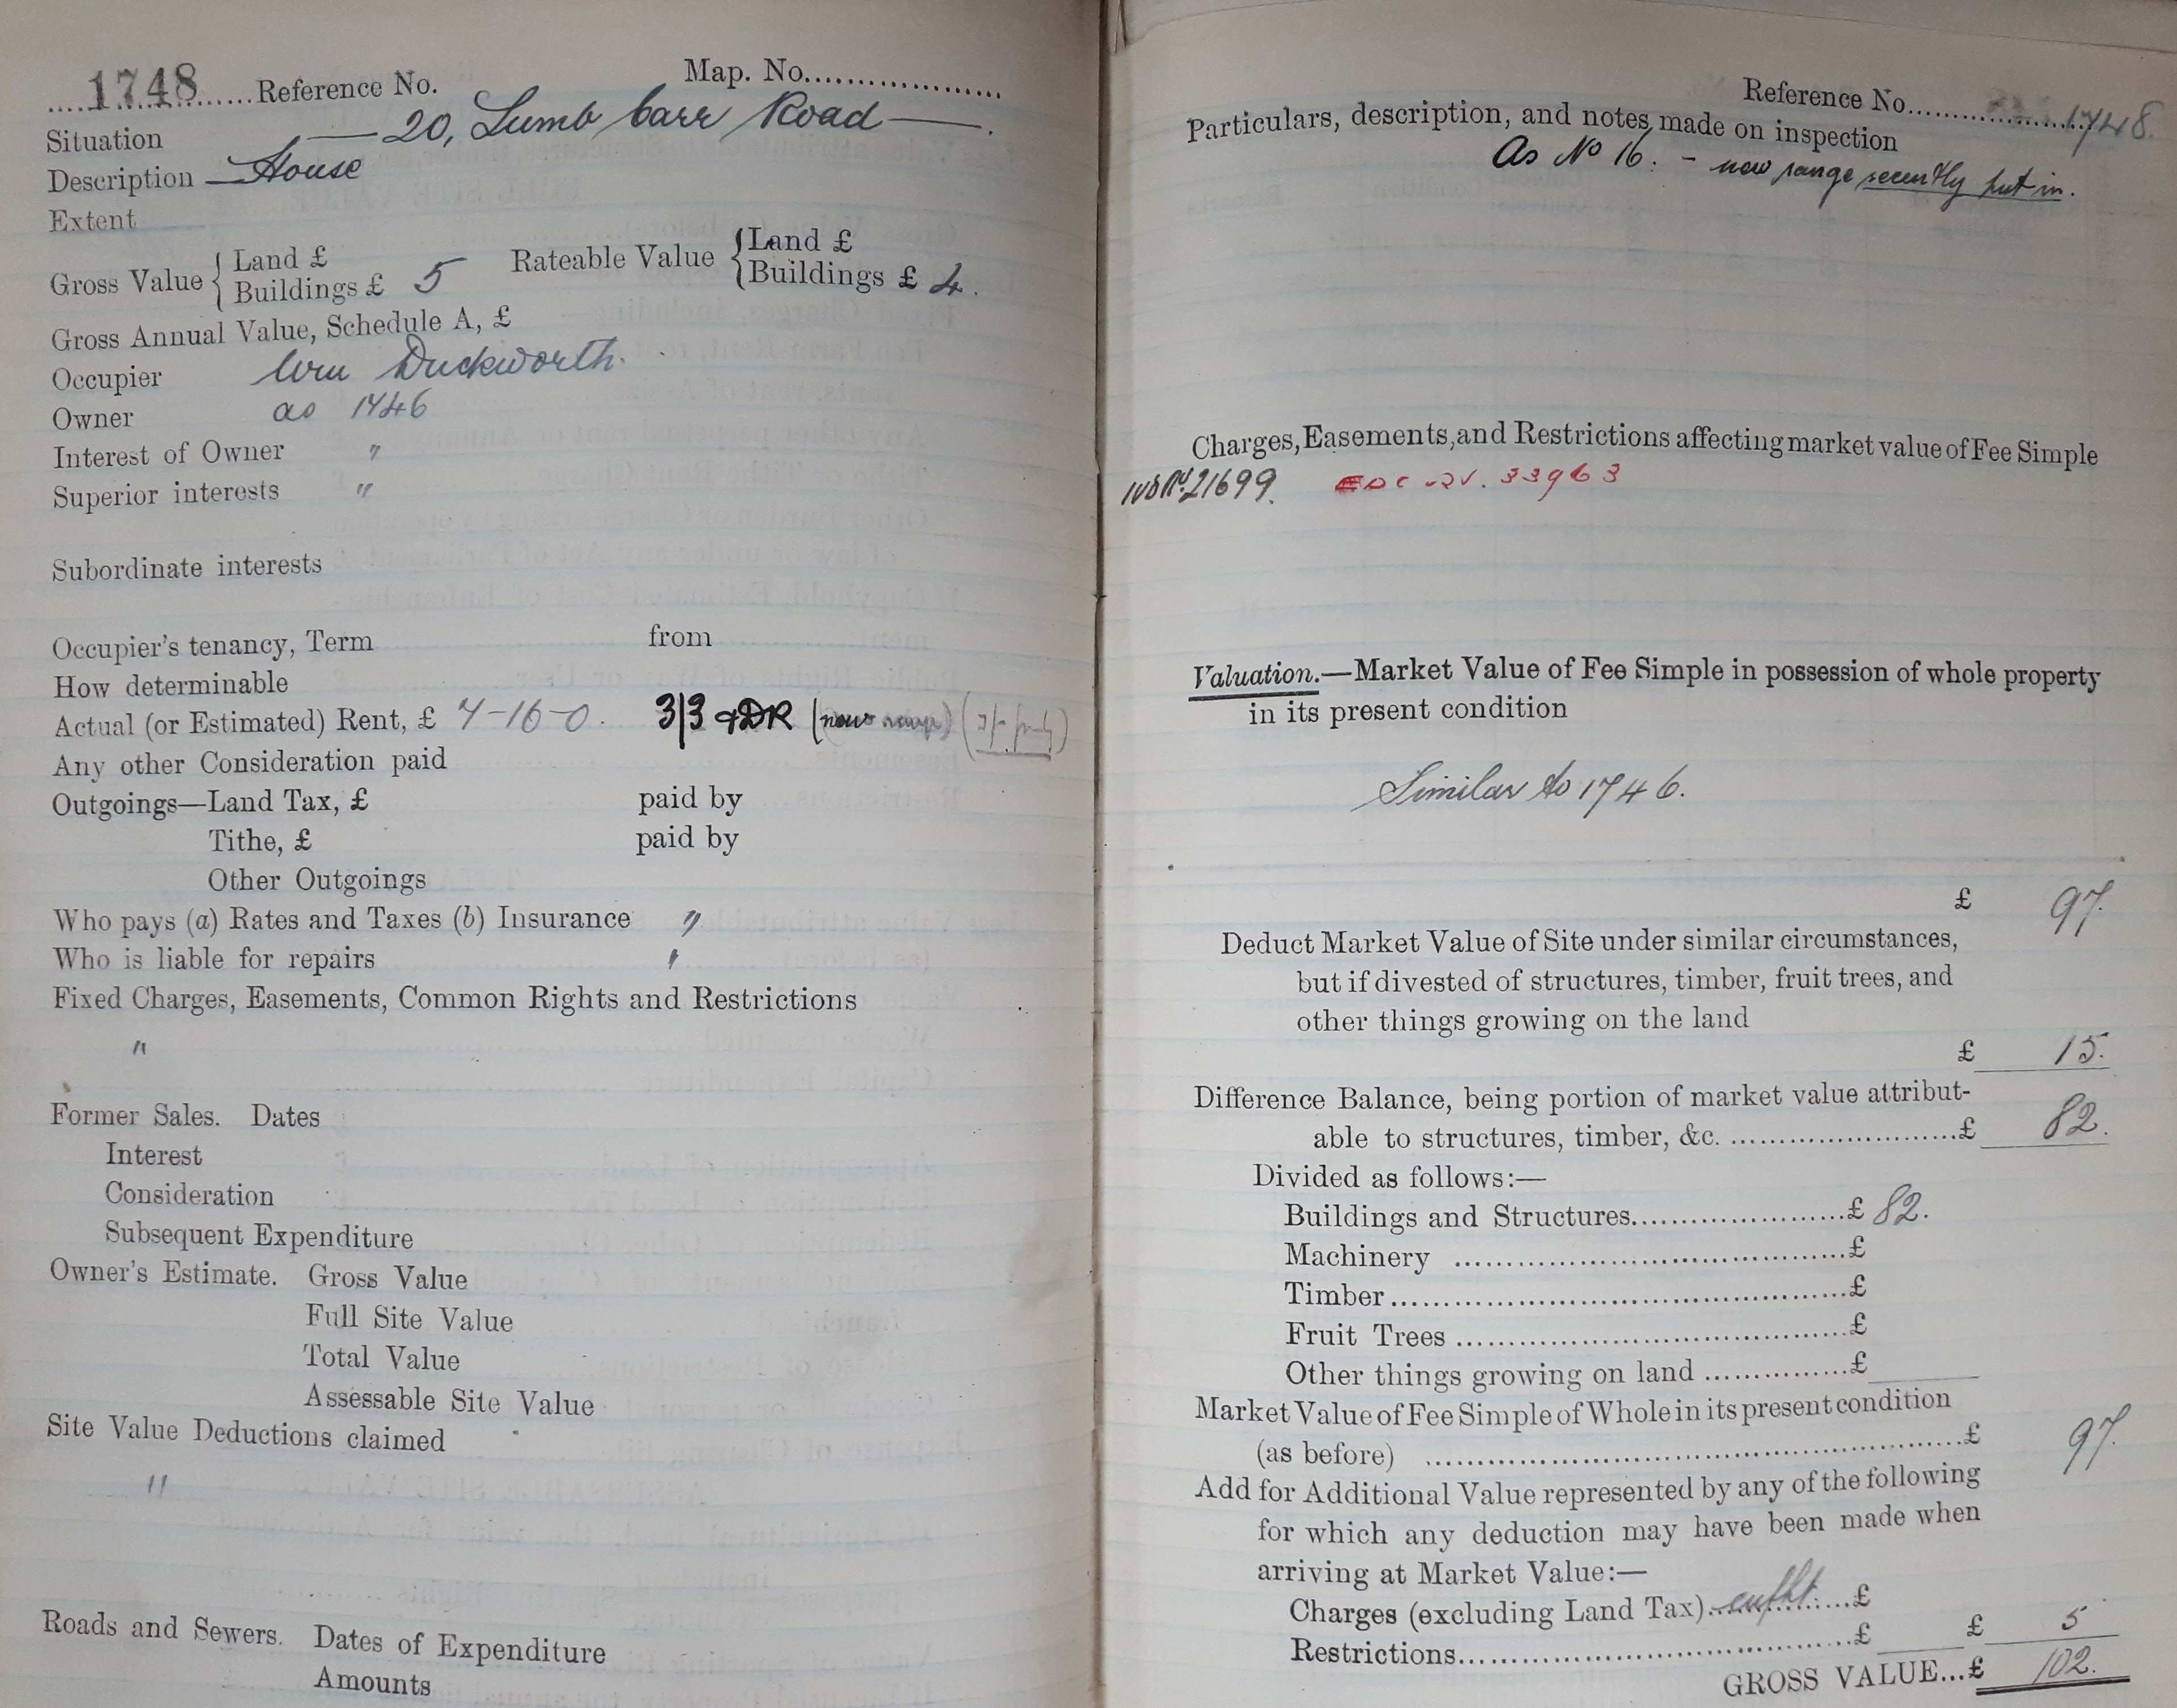 1748 Reference No. Map. No.
Situation — 20, Lumb Carr Road —.
Description — House
Extent
Gross Value { Land £
Buildings £ 5
Rateable Value { Land £
Buildings £ 4.
Gross Annual Value, Schedule A, £
Occupier Wm Duckworth.
Owner as 1746
Interest of Owner "
Superior interests "
Subordinate interests
Occupier's tenancy, Term from
How determinable
Actual (or Estimated) Rent, £ 7-16-0. 3/3 + DR (new range)
Any other Consideration paid
Outgoings—Land Tax, £ paid by
Tithe, £ paid by
Other Outgoings
Who pays (a) Rates and Taxes (b) Insurance "
Who is liable for repairs "
Fixed Charges, Easements, Common Rights and Restrictions
"
Former Sales. Dates
Interest
Consideration
Subsequent Expenditure
Owner's Estimate. Gross Value
Full Site Value
Total Value
Assessable Site Value
Site Value Deductions claimed
"
Roads and Sewers. Dates of Expenditure
Amounts
Reference No. 1748.
Particulars, description, and notes made on inspection
As No 16. - new range recently put in.
Charges, Easements, and Restrictions affecting market value of Fee Simple
21699. 33963
Valuation.—Market Value of Fee Simple in possession of whole property
in its present condition
Similar to 1746.
£ 97.
Deduct Market Value of Site under similar circumstances,
but if divested of structures, timber, fruit trees, and
other things growing on the land
£ 15.
Difference Balance, being portion of market value attribut-
able to structures, timber, &c. £ 82.
Divided as follows:—
Buildings and Structures £ 82.
Machinery £
Timber £
Fruit Trees £
Other things growing on land £
Market Value of Fee Simple of Whole in its present condition
(as before) £ 97.
Add for Additional Value represented by any of the following
for which any deduction may have been made when
arriving at Market Value:—
Charges (excluding Land Tax) £
Restrictions £ £ 5
GROSS VALUE...£ 102.